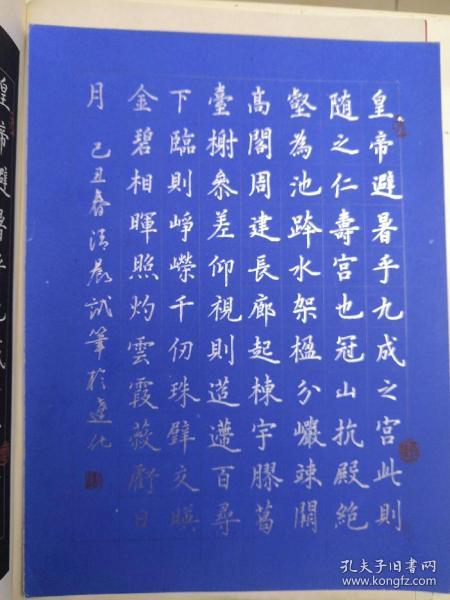 皇帝避暑乎九成之宮此則
随之仁壽宮也冠山抗殿絕
壑為池跨水架楹分巖竦闕
高閣周建長廊起棟宇膠葛
臺榭參差仰視則迢遰百尋
下臨則崢嶸千仞珠壁交暎
金碧相暉照灼雲霞蔽虧日
月 己丑春清晨試筆於遵化
皇帝避暑乎九成
孔夫子旧书网